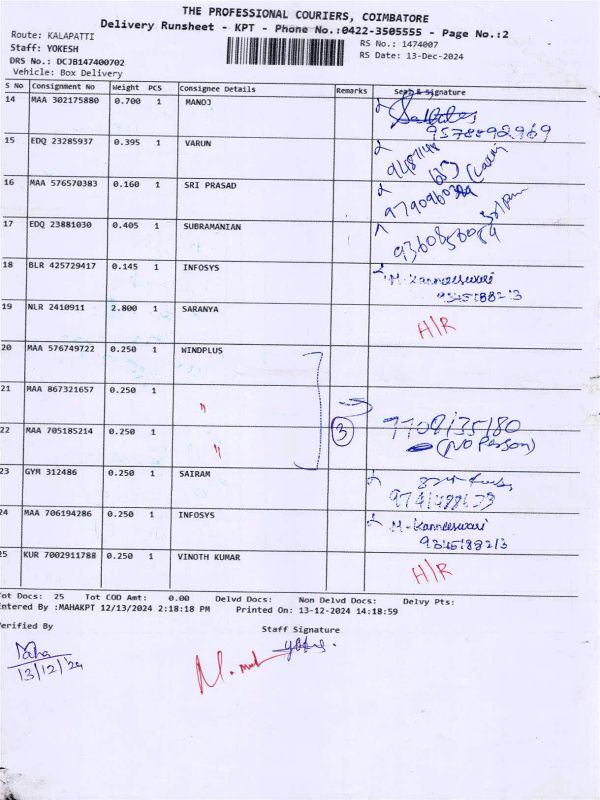 THE PROFESSIONAL COURIERS, COIMBATORE
Delivery Runsheet - KPT - Phone No.:0422-3505555 - Page No.:2
Route: KALAPATTI
RS No.: 1474007
Staff: YOKESH
RS Date: 13-Dec-2024
DRS No.: DCJB147400702
Vehicle: Box Delivery
S No Consignment No Weight PCS Consignee Details Remarks Seal & Signature
14 MAA 302175880 0.700 1 MANOJ
9578892969
15 EDQ 23285937 0.395 1 VARUN
16 MAA 576570383 0.160 1 SRI PRASAD
17 EDQ 23881030 0.405 1 SUBRAMANIAN
9360856084
18 BLR 425729417 0.145 1 INFOSYS M. Kanneeswari
9345188213
19 NLR 2410911 2.800 1 SARANYA H/R
20 MAA 576749722 0.250 1 WINDPLUS
21 MAA 867321657 0.250 1 "
22 MAA 705185214 0.250 1 " 3 9708135180
(No Person)
23 GYM 312486 0.250 1 SAIRAM
24 MAA 706194286 0.250 1 INFOSYS M. Kanneeswari
9345188213
25 KUR 7002911788 0.250 1 VINOTH KUMAR H/R
Tot Docs: 25 Tot COD Amt: 0.00 Delvd Docs: Non Delvd Docs: Delvy Pts:
Entered By :MAHAKPT 12/13/2024 2:18:18 PM Printed On: 13-12-2024 14:18:59
Verified By Staff Signature
Maha
13/12/24